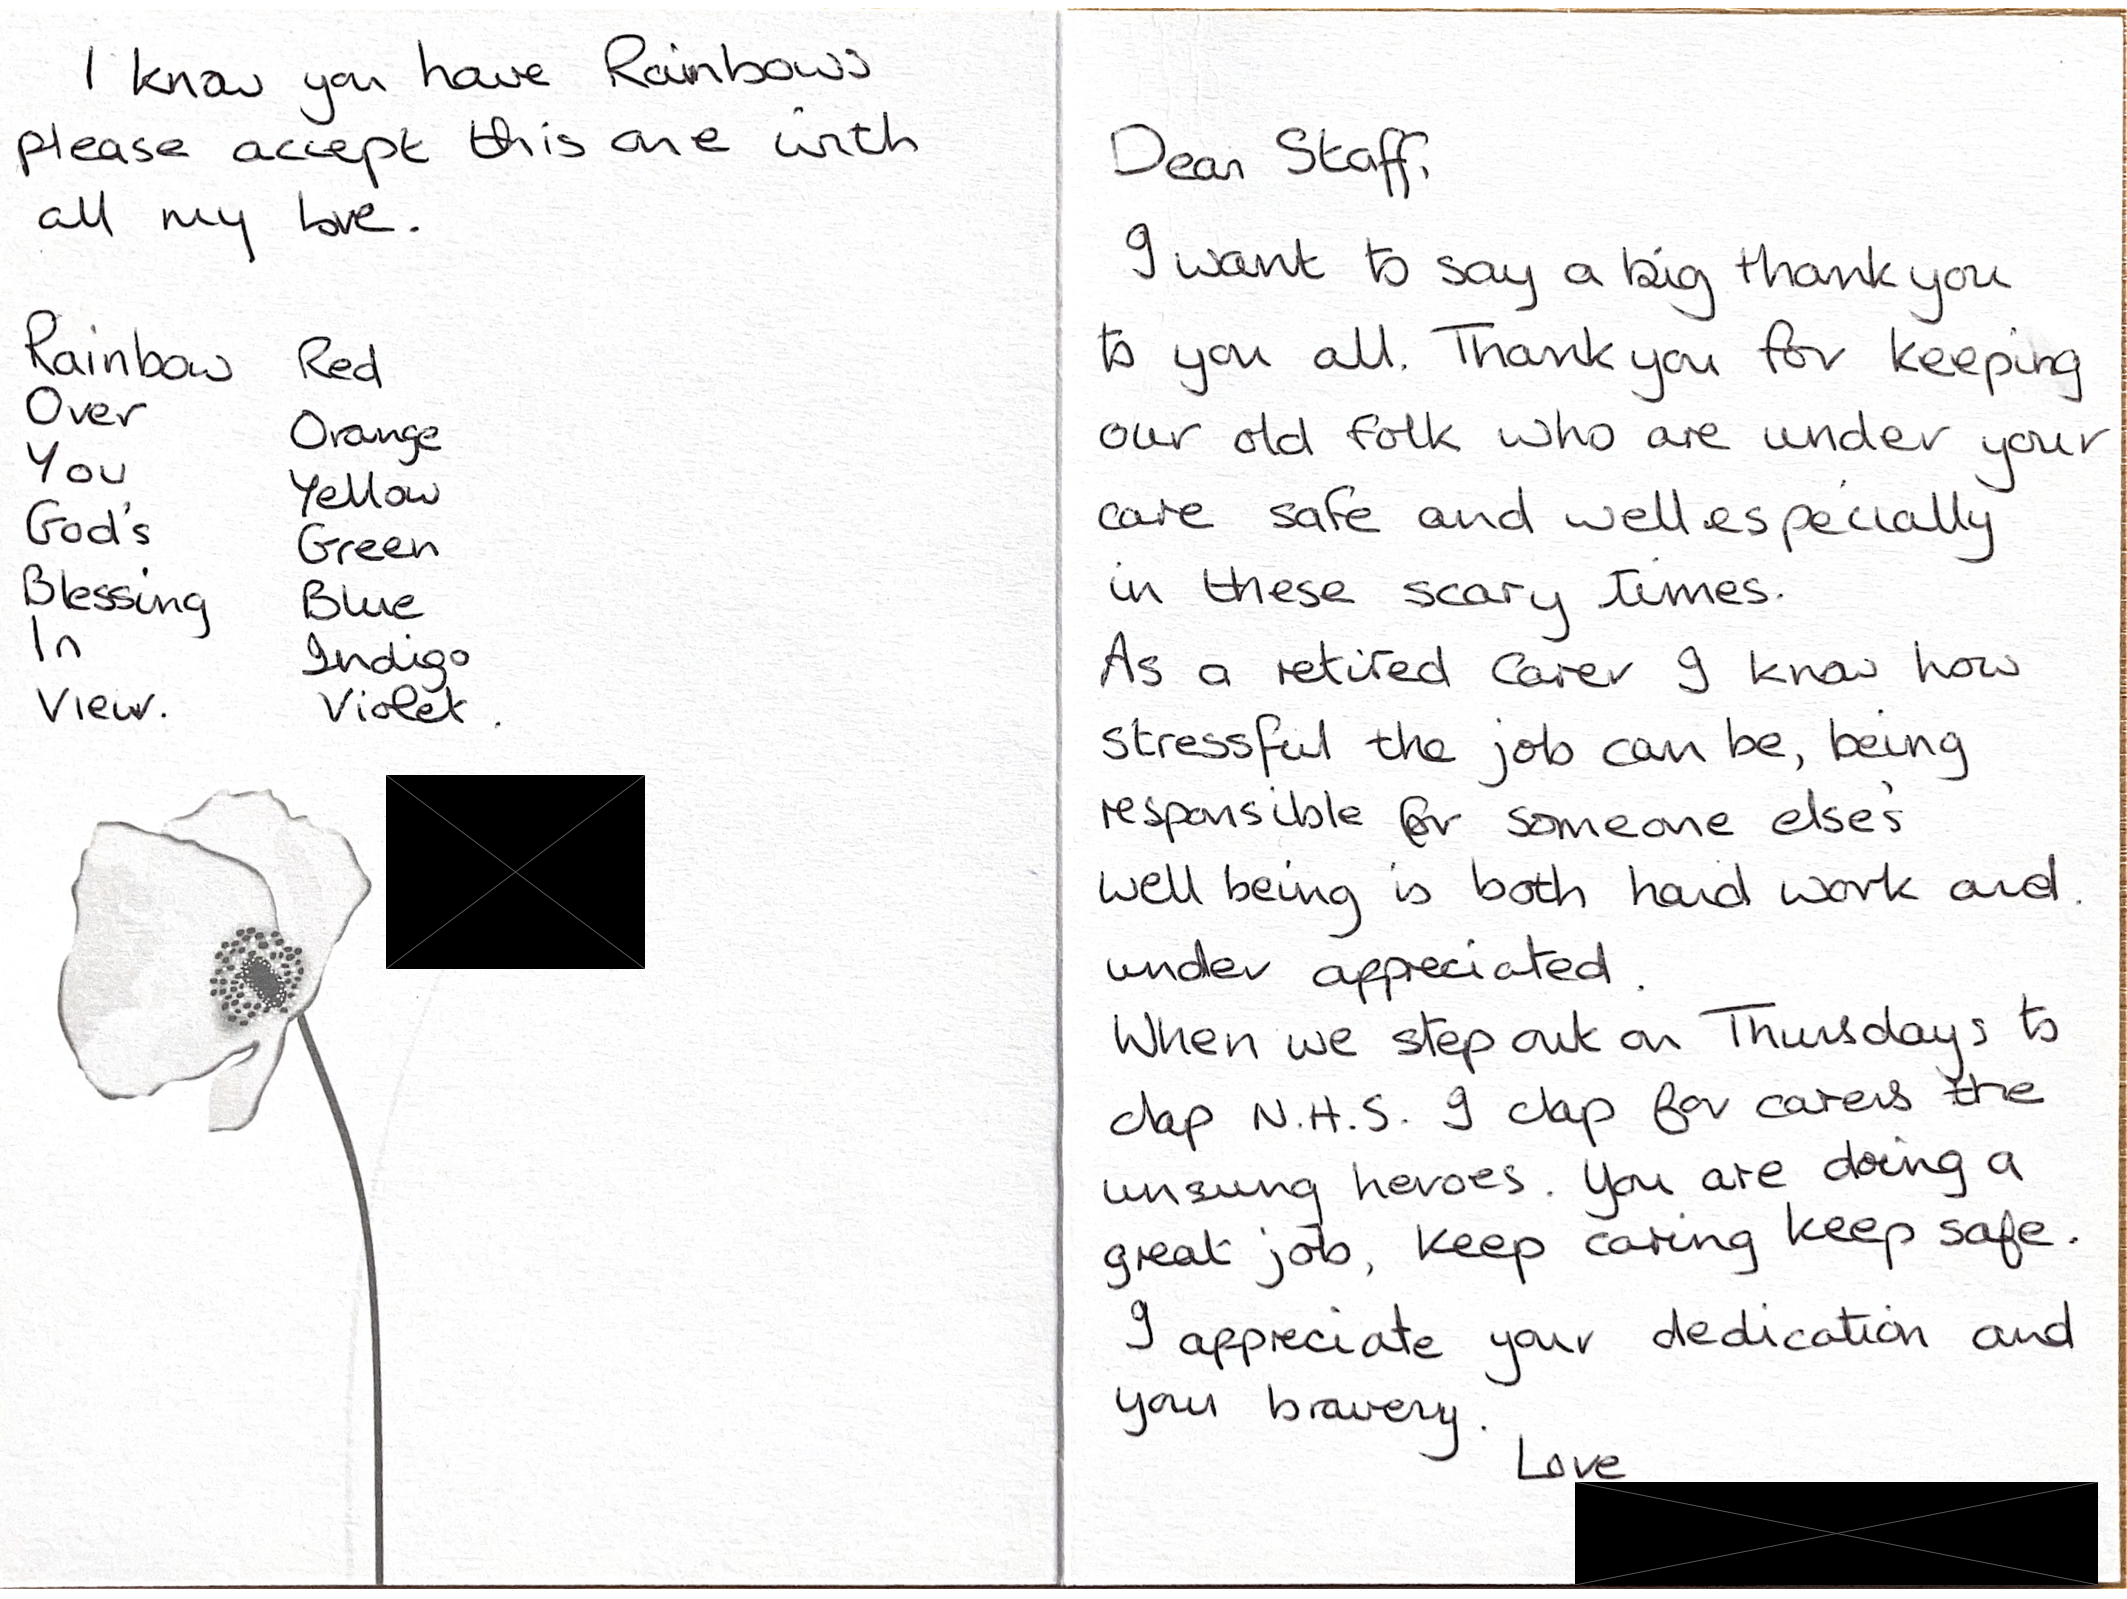 I know you have Rainbows
please accept this one with
all my love.
Rainbow Red
Over Orange
You Yellow
God's Green
Blessing Blue
In Indigo
View. Violet.
Dear Staff,
I want to say a big thank you
to you all. Thank you for keeping
our old folk who are under your
care safe and well especially
in these scary times.
As a retired Carer I know how
stressful the job can be, being
responsible for someone else's
well being is both hard work and.
under appreciated.
When we step out on Thursdays to
clap N.H.S. I clap for carers the
unsung heroes. You are doing a
great job, keep caring keep safe.
I appreciate your dedication and
your bravery.
Love